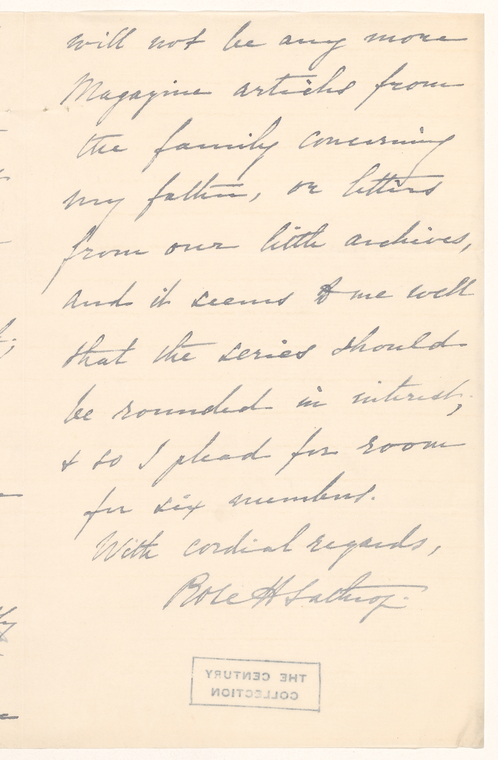 will not be any more
Magazine articles from
the family concerning
my father, or letters
from our little archives,
and it seems to me well
that the series should
be rounded in interest;
& so I plead for room
for six numbers.
With cordial regards,
Rose H Lathrop.
THE CENTURY
COLLECTION